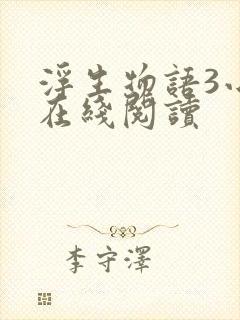 浮生物語3小
在綫閱讀
李守澤